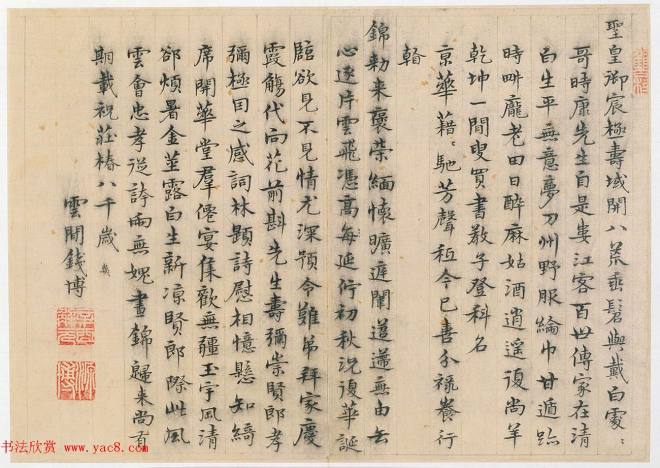 聖皇御宸極壽域開八荒垂髫與戴白處〻
歌時康先生自是婁江客百世傳家在清
白生平無意夢刀州野服綸巾甘遁跡
時時龐老田日醉麻姑酒逍遙復尚羊
乾坤一閒叟買書教子登科名
京華藉〻馳芳聲秪今已喜分祿養行
看
錦勅來褒榮緬懷曠遲闊道遠無由去
心逐片雲飛憑高每延佇初秋況復華誕
臨欲見不見情尤深題令難吊拜家慶
霞觴代向花前斟先生壽彌崇賢郎孝
彌極因之感詞林題詩慰相憶懸知綺
席開華堂群僊宴集歡無疆玉宇風清
卻煩暑金莖露白生新涼賢郎際此風
雲會忠孝從誇兩無媿晝錦歸來尚有
期載祝莊椿八千歲
雲間錢博
书法欣赏 www.yac8.com